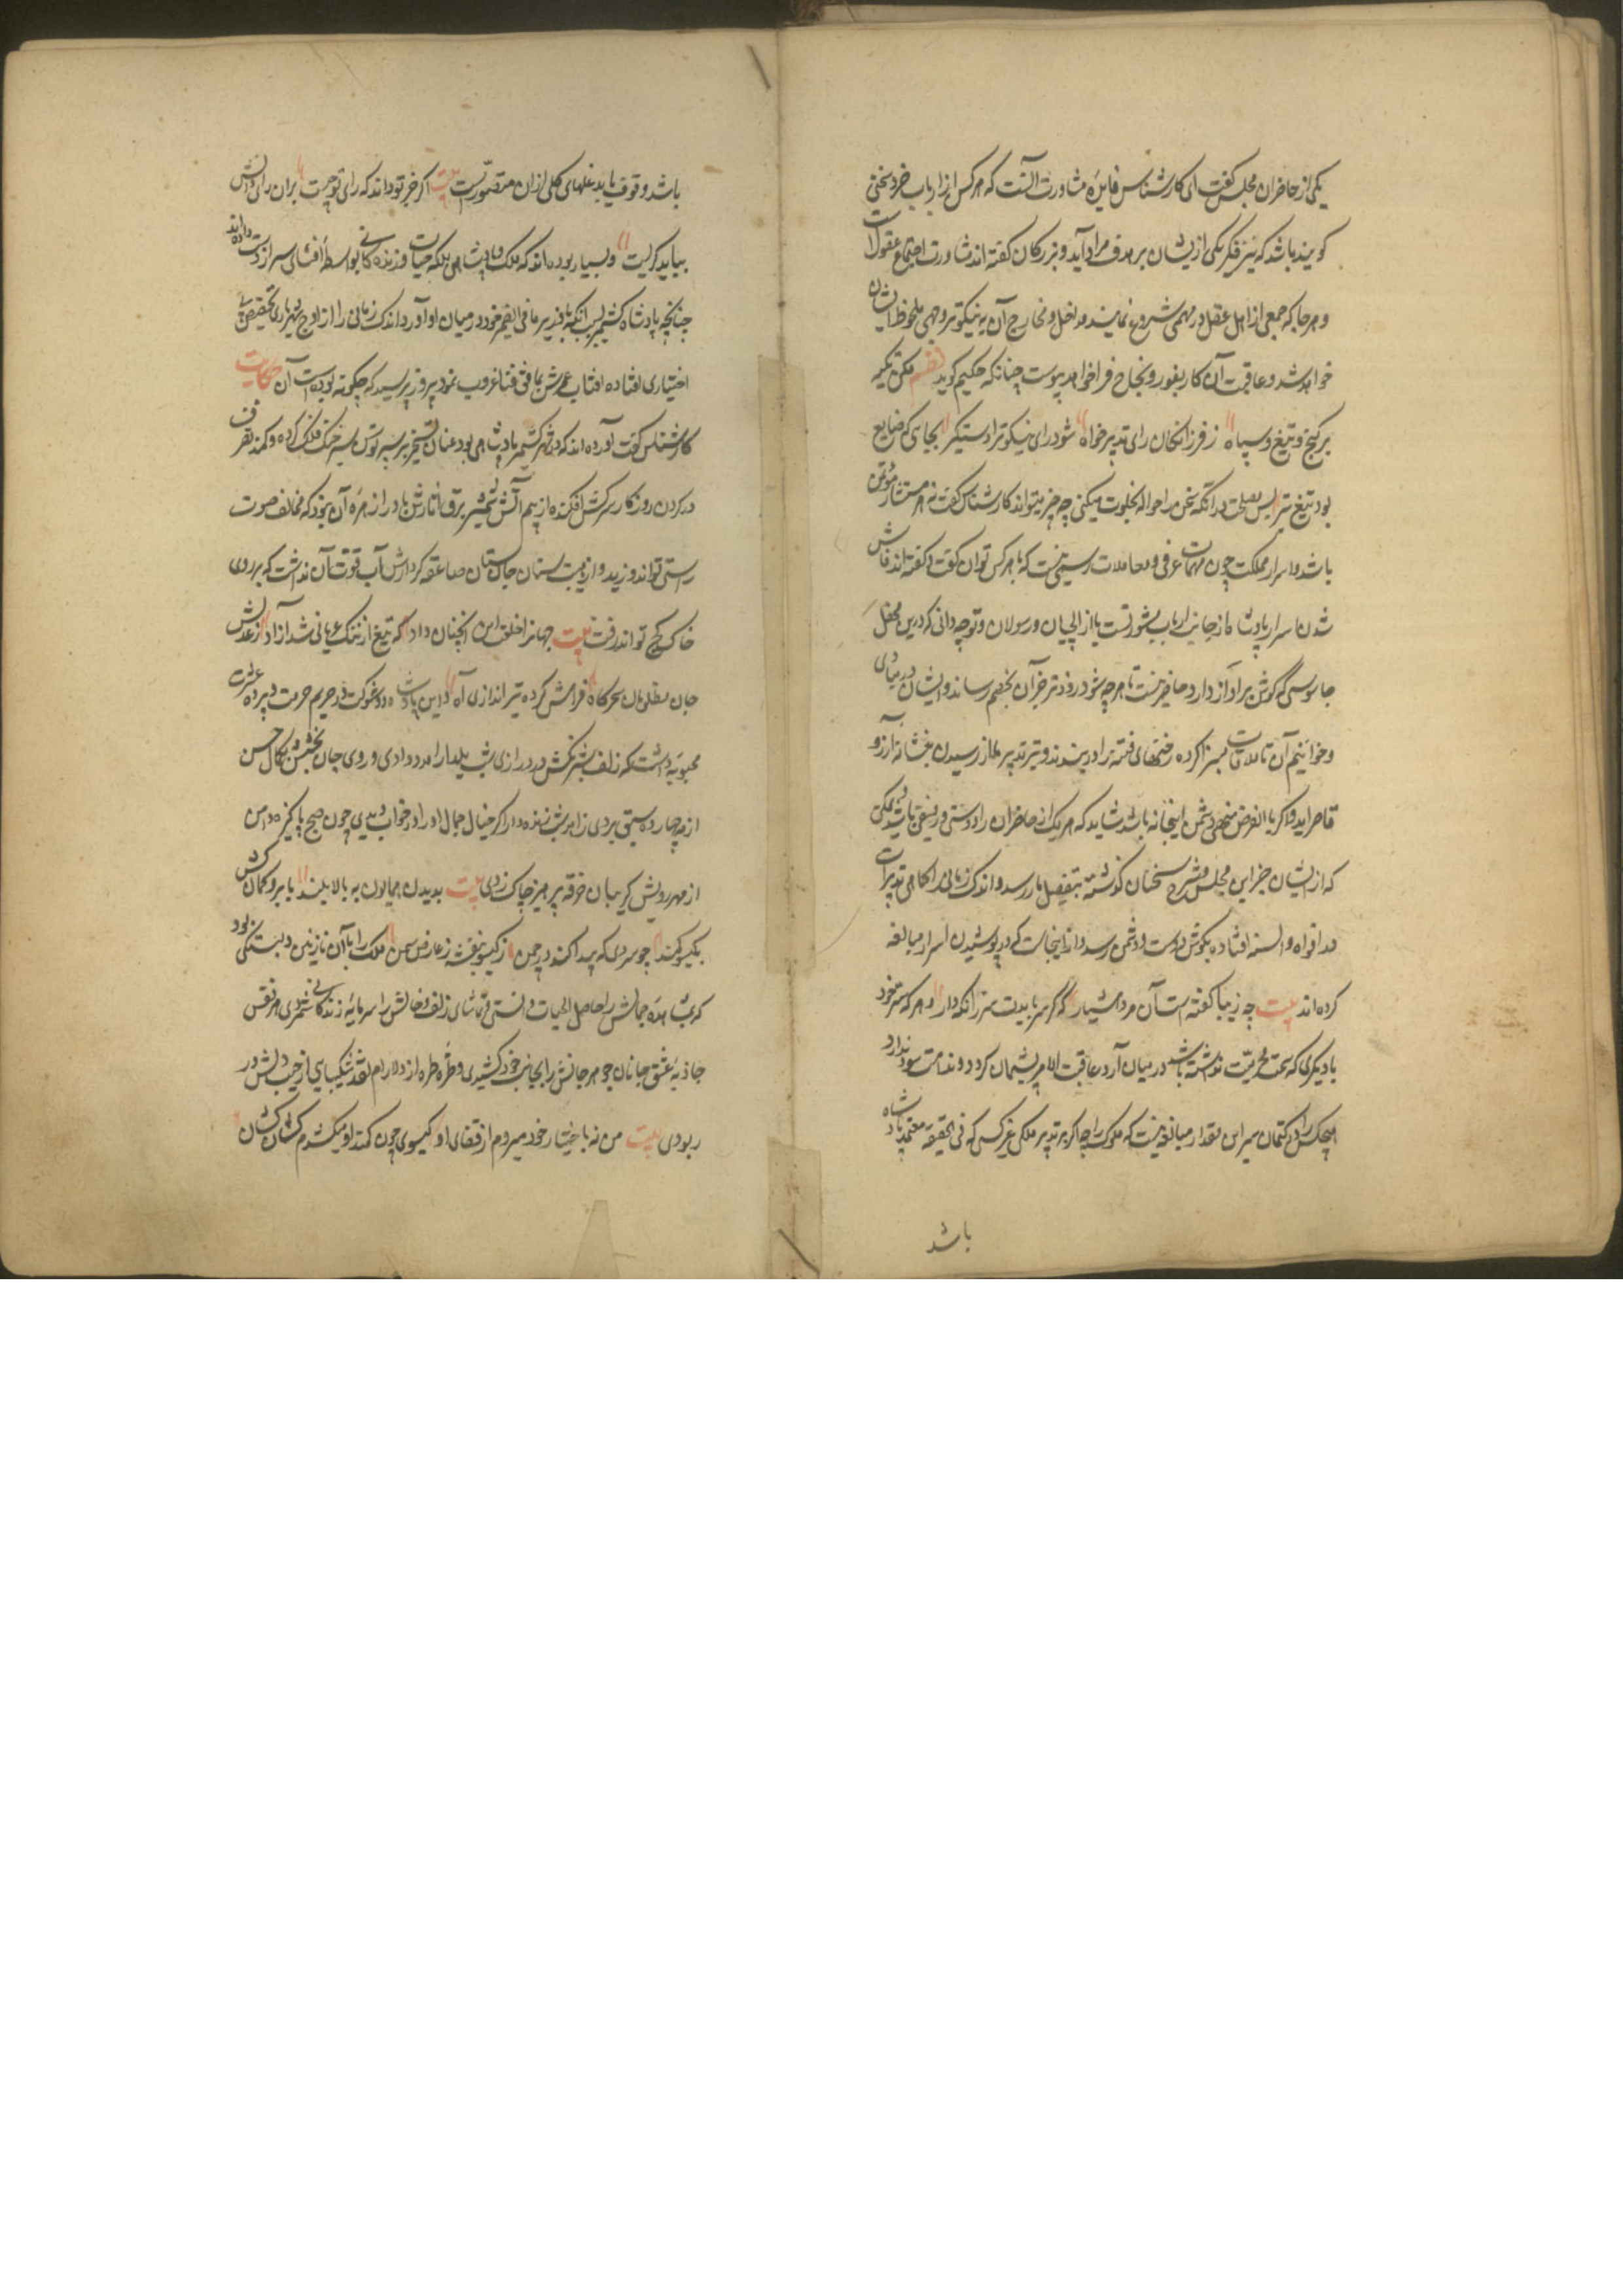 یکی از حاضران مجلس گفت ای کارشناس فایدهٔ مشاورت آنست که هر کس از ارباب خرد سخنی
کویند باشد که تیر فکر یکی ازیشان بر هدف مراد آید و بزرکان گفته اند مشاورت اجتماع عقول است
و هرجا که جمعی از اهل عقل در مهمی شروع نمایند مداخل و مخارج آن به نیکوتر وجهی ملحوظ ایشان
خواهد شد و عاقبت آن کار بفوز و نجاح فراخواهد پیوست چنانکه حکیم کوید نظم مکن تکیه
بر کنج و تیغ و سپاه ز فرزانکان رای تدبیر خواه شود رای نیکو ترا دستگیر بجایی که ضایع
بود تیغ و تیر پس مصلحت در آنکه سخن را حواله بخلوت میکنی چه چیز میتواند کارشناس گفت نه هر مستشار مؤتمن
باشد و اسرار مملکت چون مهمات عرفی و معاملات رسمی نیست که با هر کس توان گفت و گفته اند فاش
شدن اسرار پادشاه از جانب ارباب مشورتست یا از ایلچیان و رسولان و تو چه دانی که درین محفل
جاسوسی گوش بر آواز دارد حاضر نیست تا هر چه شنود زودتر خبر آن بخصم رساند و ایشان در مبادی
و خواتیم آن تاملات بسزا کرده رخنهای فتنه را در بندند و تیر تدبیر ما از رسیدن بنشانهٔ آرزو
قاصر آید و اکر بالفرض منهی دشمن اینجا نباشد شاید که هر یک از حاضران را دوستی و رفیقی باشد ممکن
که از ایشان خبر این مجلس و شرح سخنان گذشته بتفصیل باز رسد و اندک زمانی را کماهی تدبیرات
در افواه و السنه افتاده بگوش دوست و دشمن رسد و ازینجاست که در پوشیدن اسرار مبالغه
کرده اند بیت چه زیبا گفته است آن مرد هشیار که گر سر بایدت سر را نکه دار و هر که سر خود
با دیکری که سمت محرمیت نداشته باشد در میان آرد عاقبت الامر پشیمان کردد و ندامت سود ندارد
هیچکس را در کتمان سر این مقدار مبالغه نیست که ملوک را چه اکر بر تدبیر ملکی غیر کسی که فی الحقیقة معتمد پادشاه
باشد
باشد وقوف یابد خللهای کلی از آن متصورست بیت اکر خبر تو داند که رای تو چیست بران رای و دانش
بباید کریست و بسیار بوده اند که ملک و پادشاهی بلکه حیات و زندگانی بواسطهٔ افشای سر از دست داده اند
چنانچه پادشاه کشمیر بسبب آنکه با وزیر ما فی الضمیر خود در میان آورد و اندک زمانی را از اوج شهریاری بحضیض بی
اختیاری افتاده آفتاب عمرش بافق فنا غروب نمود پیروز پرسید که چکونه بوده است آن حکایت
کارشناس گفت آورده اند که در شهر کشمیر پادشاهی بود عنان تسخیر بر سپهر توسن سیر خنک فلک کرده و کمند تصرف
در کردن روزکار سرکش افکنده از بیم آتش شمشیر برق آثارش باد را زهرهٔ آن نبود که مخالف صوت
راستی تواند وزید و از هیبت سنان جان ستان صاعقه کردارش آب قوت آن نداشت که بر روی
خاک کج تواند رفت بیت جهانرا خلق امن آنچنان داد که تیغ از ننک عریانی شد آزاد ز عدلش
جان مظلومان سحرکاه فرامش کرده تیر اندازی آه و این پادشاه در حریم حرمت و پردهٔ عزت
محبوبهٔ داشت که زلف شبرنگش در درازی شب یلدا را مدد دادی و روی جان بخشش در کمال حسن
از مه چهارده سبق بردی زاهد شب زنده دار اکر خیال جمال او را در خواب دیدی چون صبح پاکیزه دامن
از مهر رویش کریبان خرقه پرهیز چاک زدی بیت بدیدن همایون ببالا بلند بابرو کمان کش
بکیسو کمند چو سروی که پیدا کند در چمن ز کیسو بنفشه ز عارض سمن ملک را با آن نازنین دلبستکی بود
که مشاهدهٔ جمالش را حاصل الحیات دانستی و تماشای زلف و خالش را سرمایهٔ زندکانی شمردی هر نفس
جاذبهٔ عشق جانان جوهر جانش را بجانب خود کشیدی و طرهٔ طرار دلارام نقد شکیبایی از جیب دلش در
ربودی بیت من نه باختیار خود میروم از قفای او کیسوی چون کمند او میکشدم کشان کشان